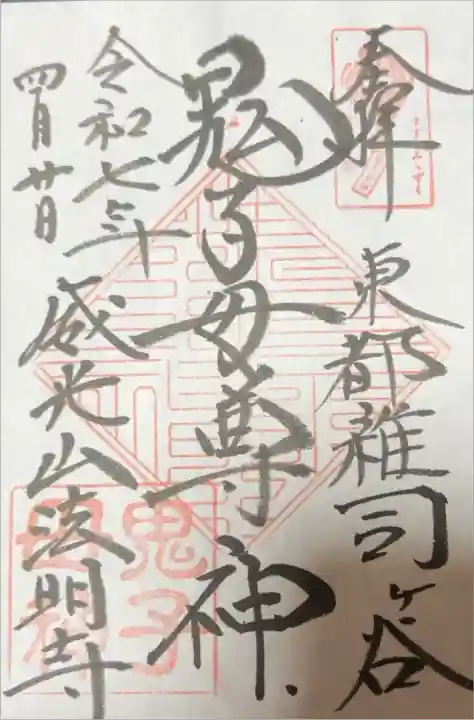 奉拝
東都雑司ヶ谷
鬼子母尊神
令和七年
四月廿日
威光山法明寺
鬼子
母神